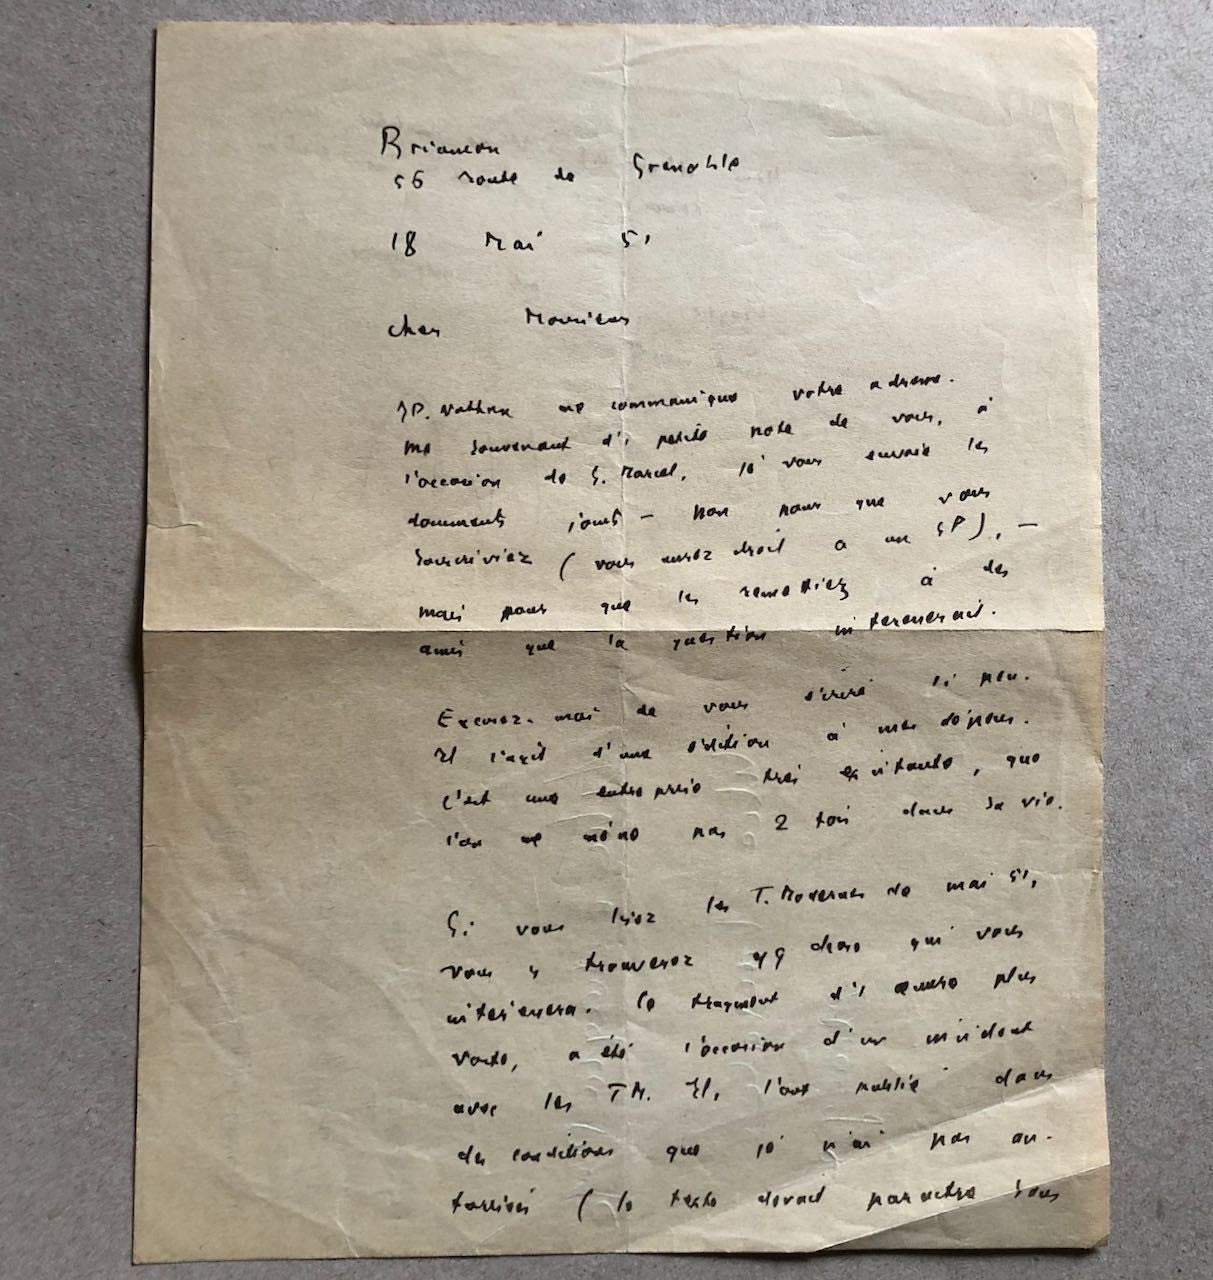 Briancon
56 route de Grenoble
18 Mai 51
cher Monsieur
JP. Nathan me communique votre adresse.
me souvenant d'1 petite note de vous, à
l'occasion de G. Marcel, je vous envoie les
documents joints – non pour que vous
souscriviez (vous aurez droit à un SP), –
mais pour que les remettiez à des
amis que la question intéresserait.
Excusez-moi de vous écrire si peu.
Il s'agit d'une édition à mes dépens.
C'est une entreprise très excitante, que
l'on ne mène pas 2 fois dans sa vie.
Si vous lisez les T. Modernes de mai 51,
vous y trouverez qq chose qui vous
intéressera. Ce fragment d'1 œuvre plus
vaste, a été l'occasion d'un incident
avec les TM. Ils l'ont publié dans
des conditions que je n'ai pas au-
torisées (le texte devait paraître sous